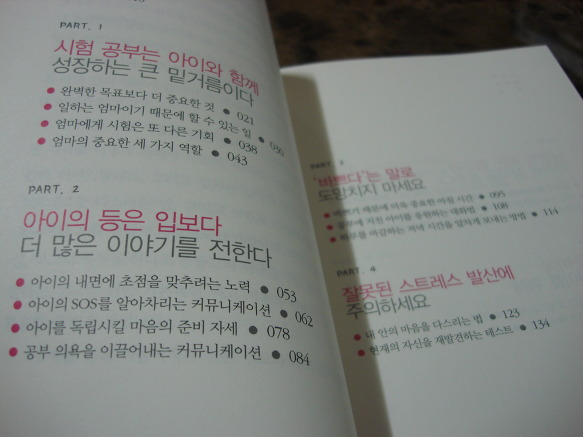 PART. 1
시험 공부는 아이와 함께
성장하는 큰 밑거름이다
● 완벽한 목표보다 더 중요한 것 ● 021
● 일하는 엄마이기 때문에 할 수 있는 일 ● 030
● 엄마에게 시험은 또 다른 기회 ● 038
● 엄마의 중요한 세 가지 역할 ● 043
PART. 2
아이의 등은 입보다
더 많은 이야기를 전한다
● 아이의 내면에 초점을 맞추려는 노력 ● 053
● 아이의 SOS를 알아차리는 커뮤니케이션 ● 062
● 아이를 독립시킬 마음의 준비 자세 ● 078
● 공부 의욕을 이끌어내는 커뮤니케이션 ● 084
PART. 3
'바쁘다'는 말로
도망치지 마세요
● 바쁘기 때문에 더욱 중요한 아침 시간 ● 095
● 공부에 지친 아이를 응원하는 대화법 ● 108
● 하루를 마감하는 저녁 시간을 알차게 보내는 방법 ● 114
PART. 4
잘못된 스트레스 발산에
주의하세요
● 내 안의 마음을 다스리는 법 ● 123
● 현재의 자신을 재발견하는 테스트 ● 134